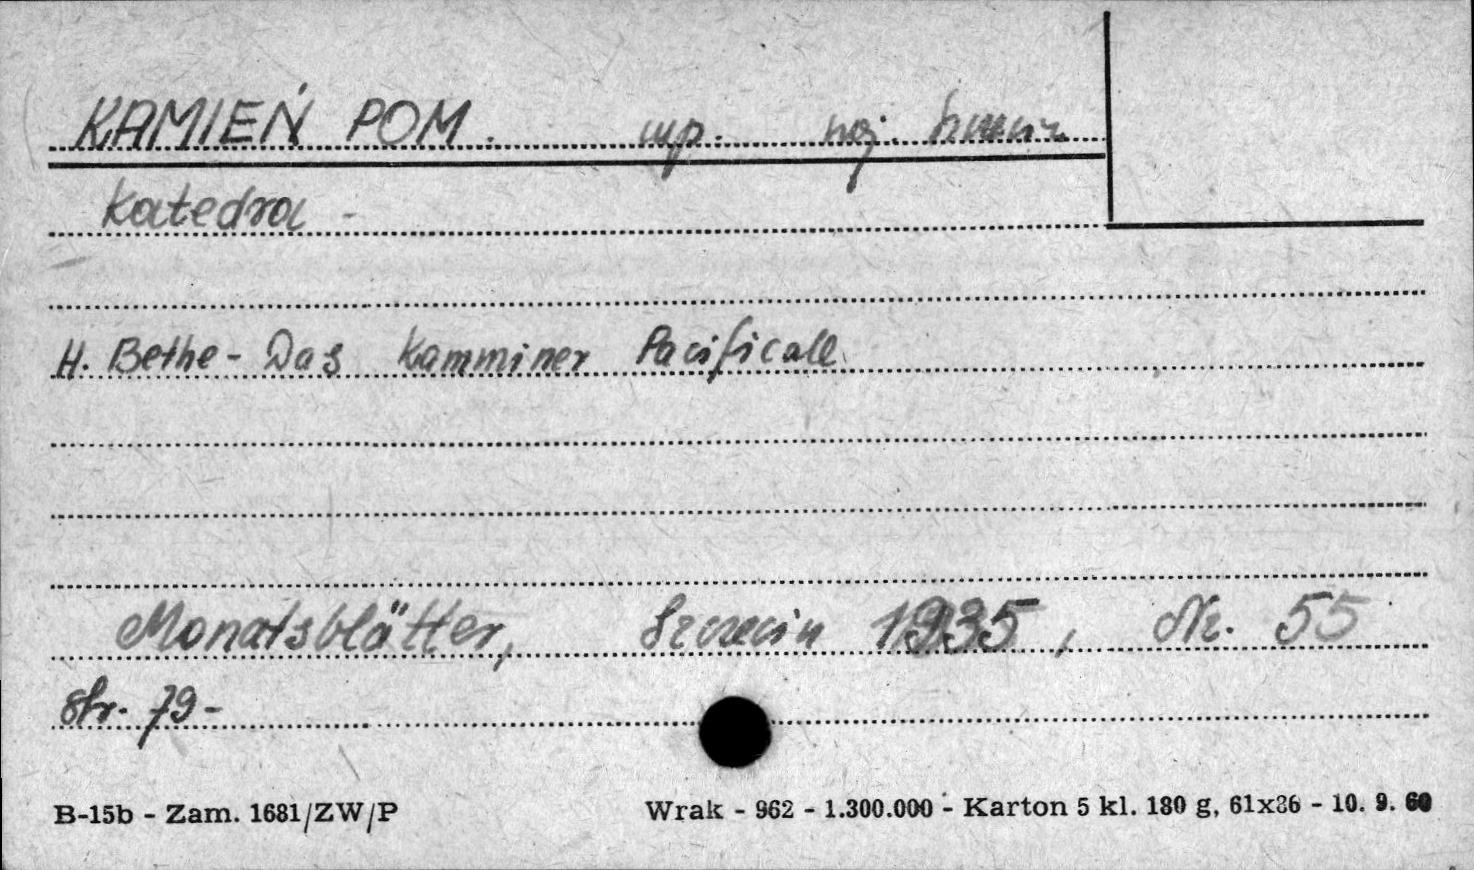 KAMIEŃ POM. woj.
Katedra -
H. Bethe - Das Kamminer Pacificale
Monatsblätter, Szczecin 1935, Nr. 55
str. 79-
B-15b - Zam. 1681/ZW/P Wrak - 962 - 1.300.000 - Karton 5 kl. 180 g, 61x86 - 10. 9. 60